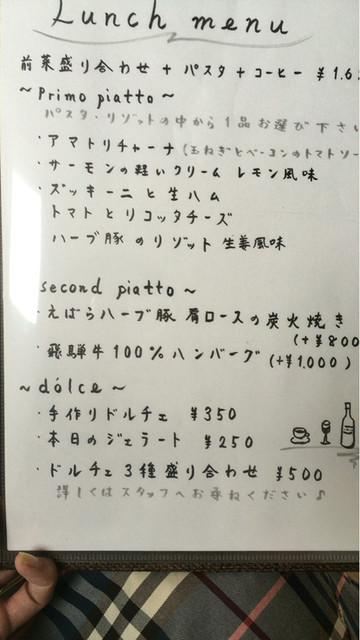 Lunch menu
前菜盛り合わせ + パスタ + コーヒー ¥1.6
~Primo piatto~
パスタ・リゾットの中から1品お選び下さい
・アマトリチャーナ(玉ねぎとベーコンのトマトソー
・サーモンの軽いクリーム レモン風味
・ズッキーニと生ハム
トマトとリコッタチーズ
ハーブ豚のリゾット 生姜風味
second piatto~
・えばらハーブ豚 肩ロースの炭火焼き
(+¥800
・飛騨牛100%ハンバーグ(+¥1.000)
~dólce~
・手作りドルチェ ¥350
・本日のジェラート ¥250
・ドルチェ3種盛り合わせ ¥500
詳しくはスタッフへお尋ねください♪